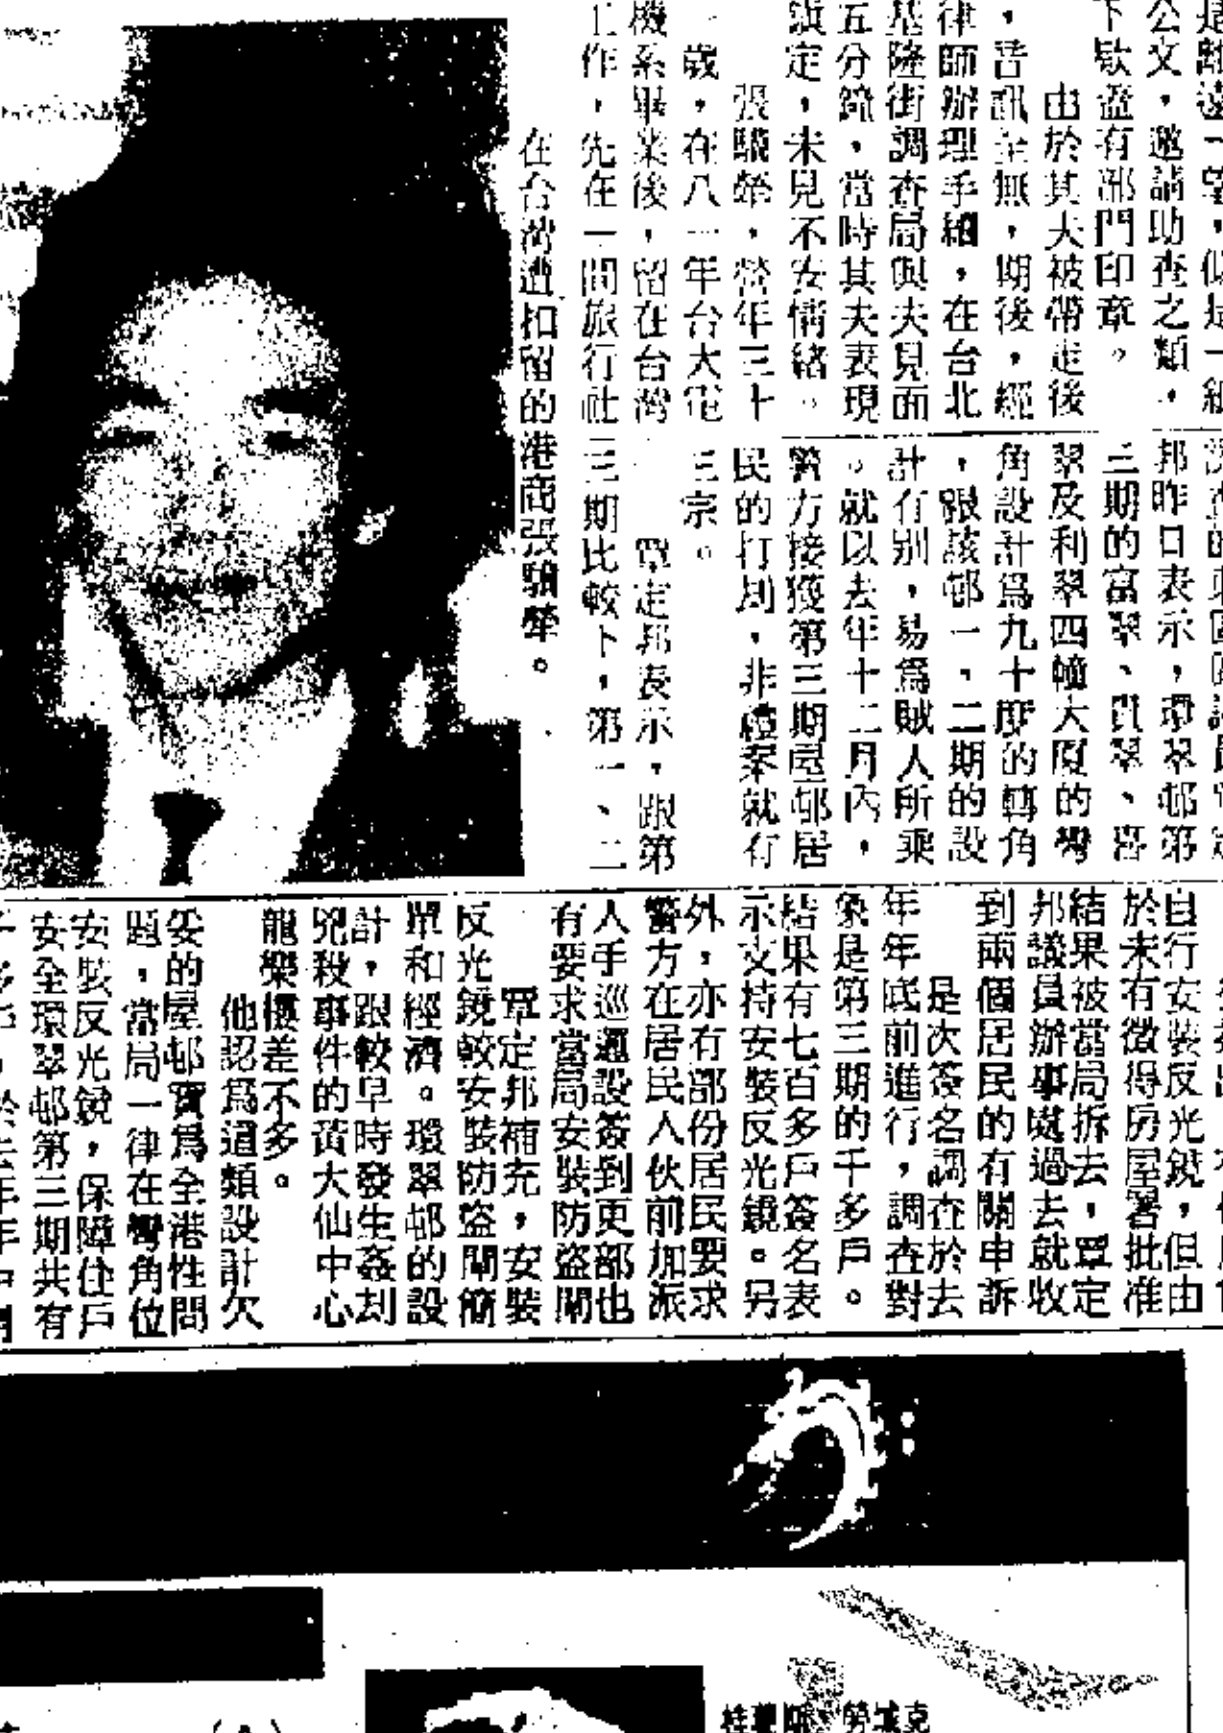 公文，邀請助查之類，
下欵盖有部門印章。
由於其夫被帶走後
，音訊全無，期後，經
律師辦理手續，在台北
基隆街調查局與夫見面
五分鐘，當時其夫表現
鎮定，未見不安情緒。
張驥犖，營年三十
一歲，在八一年台大電
機系畢業後，留在台灣
工作，先在一間旅行社
在台灣遭扣留的港商張驥犖。
邦昨日表示，環翠邨第
三期的富翠、貴翠、喜
翠及利翠四幢大廈的彎
角設計爲九十度的轉角
，跟該邨一，二期的設
計有别，易爲賊人所乘
。就以去年十二月內，
警方接獲第三期屋邨居
民的打刦，非禮案就有
三宗。
覃定邦表示，跟第
三期比較下，第一、二
自行安裝反光鏡，但由
於未有徵得房屋署批准
結果被當局拆去，覃定
邦議員辦事處過去就收
到兩個居民的有關申訴
是次簽名調查於去
年年底前進行，調查對
象是第三期的千多戶。
結果有七百多戶簽名表
示支持安裝反光鏡。另
外，亦有部份居民要求
警方在居民人伙前加派
人手巡邏設簽到更部也
有要求當局安裝防盜閘
覃定邦補充，安裝
反光鏡較安裝防盜閘簡
單和經濟。環翠邨的設
計，跟較早時發生姦刦
兇殺事件的黃大仙中心
龍樂樓差不多。
他認爲這類設計欠
妥的屋邨實爲全港性問
題，當局一律在彎角位
安裝反光鏡，保障住戶
安全環翠邨第三期共有
(A)